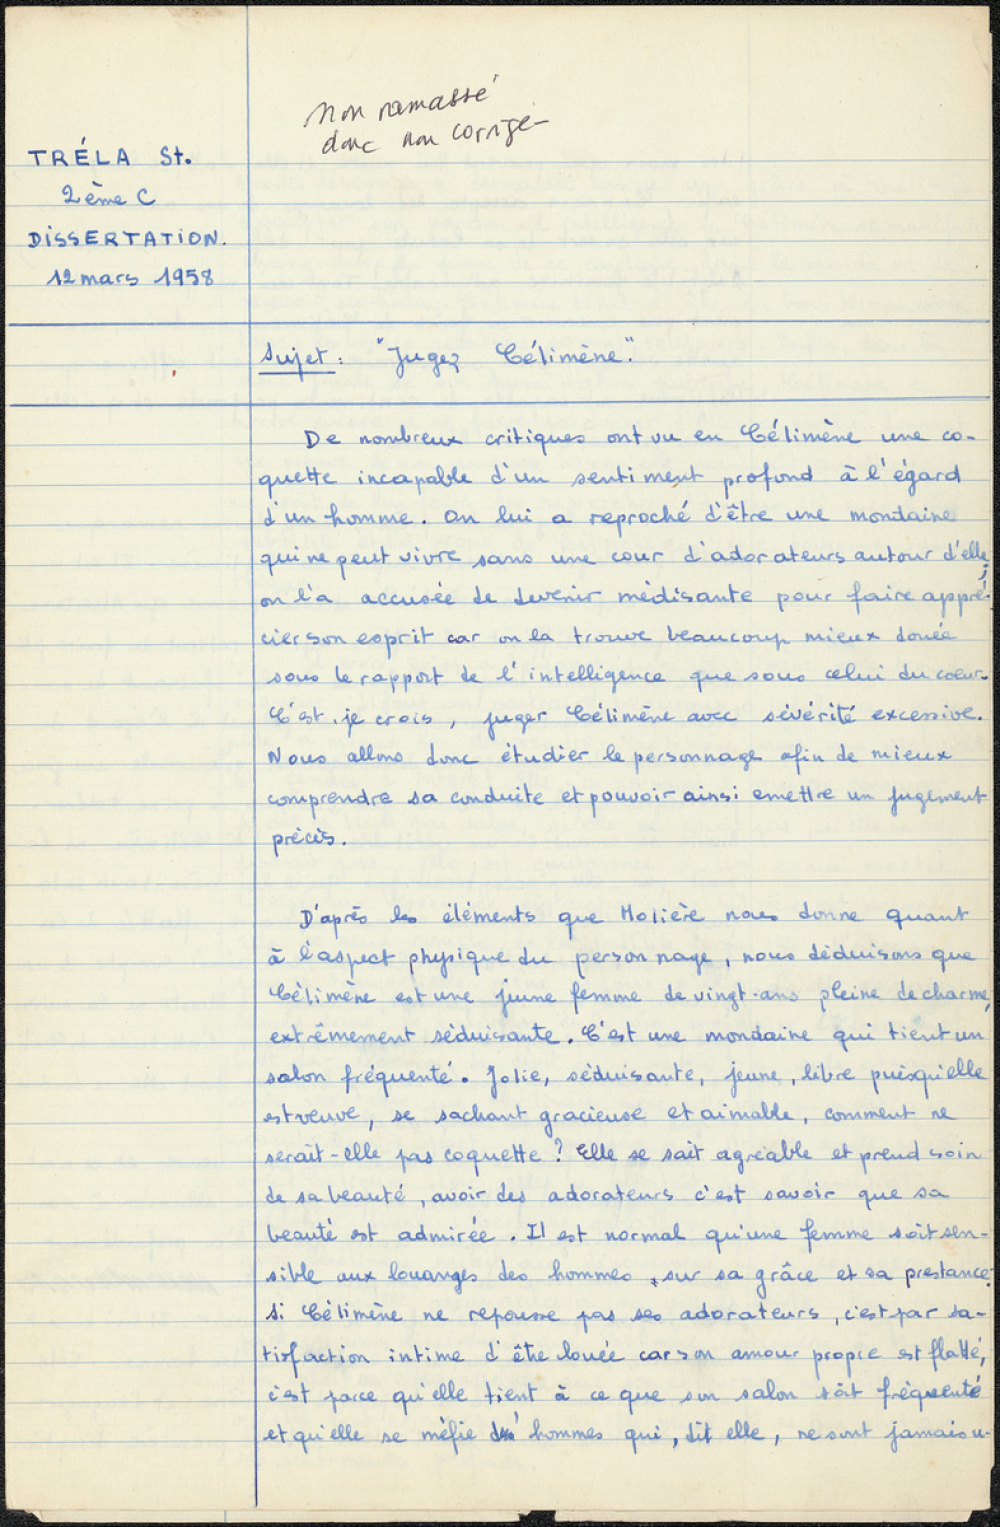 Non ramassé
donc non corrigé
TRÉLA St.
2ème C
DISSERTATION.
12 mars 1958
Sujet : "Jugez Célimène."
De nombreux critiques ont vu en Célimène une co-
quette incapable d'un sentiment profond à l'égard
d'un homme. On lui a reproché d'être une mondaine
qui ne peut vivre sans une cour d'adorateurs autour d'elle ;
on l'a accusée de devenir médisante pour faire appré-
cier son esprit car on la trouve beaucoup mieux douée
sous le rapport de l'intelligence que sous celui du coeur.
C'est, je crois, juger Célimène avec sévérité excessive.
Nous allons donc étudier le personnage afin de mieux
comprendre sa conduite et pouvoir ainsi emettre un jugement
précis.
D'après les éléments que Molière nous donne quant
à l'aspect physique du personnage, nous déduisons que
Célimène est une jeune femme de vingt-ans pleine de charme,
extrêmement séduisante. C'est une mondaine qui tient un
salon fréquenté. Jolie, séduisante, jeune, libre puisqu'elle
est veuve, se sachant gracieuse et aimable, comment ne
serait-elle pas coquette ? Elle se sait agréable et prend soin
de sa beauté, avoir des adorateurs c'est savoir que sa
beauté est admirée. Il est normal qu'une femme soit sen-
sible aux louanges des hommes, sur sa grâce et sa prestance.
Si Célimène ne repousse pas ses adorateurs, c'est par sa-
tisfaction intime d'être louée car son amour propre est flatté,
c'est parce qu'elle tient à ce que son salon soit fréquenté
et qu'elle se méfie des hommes qui, dit elle, ne sont jamais u-